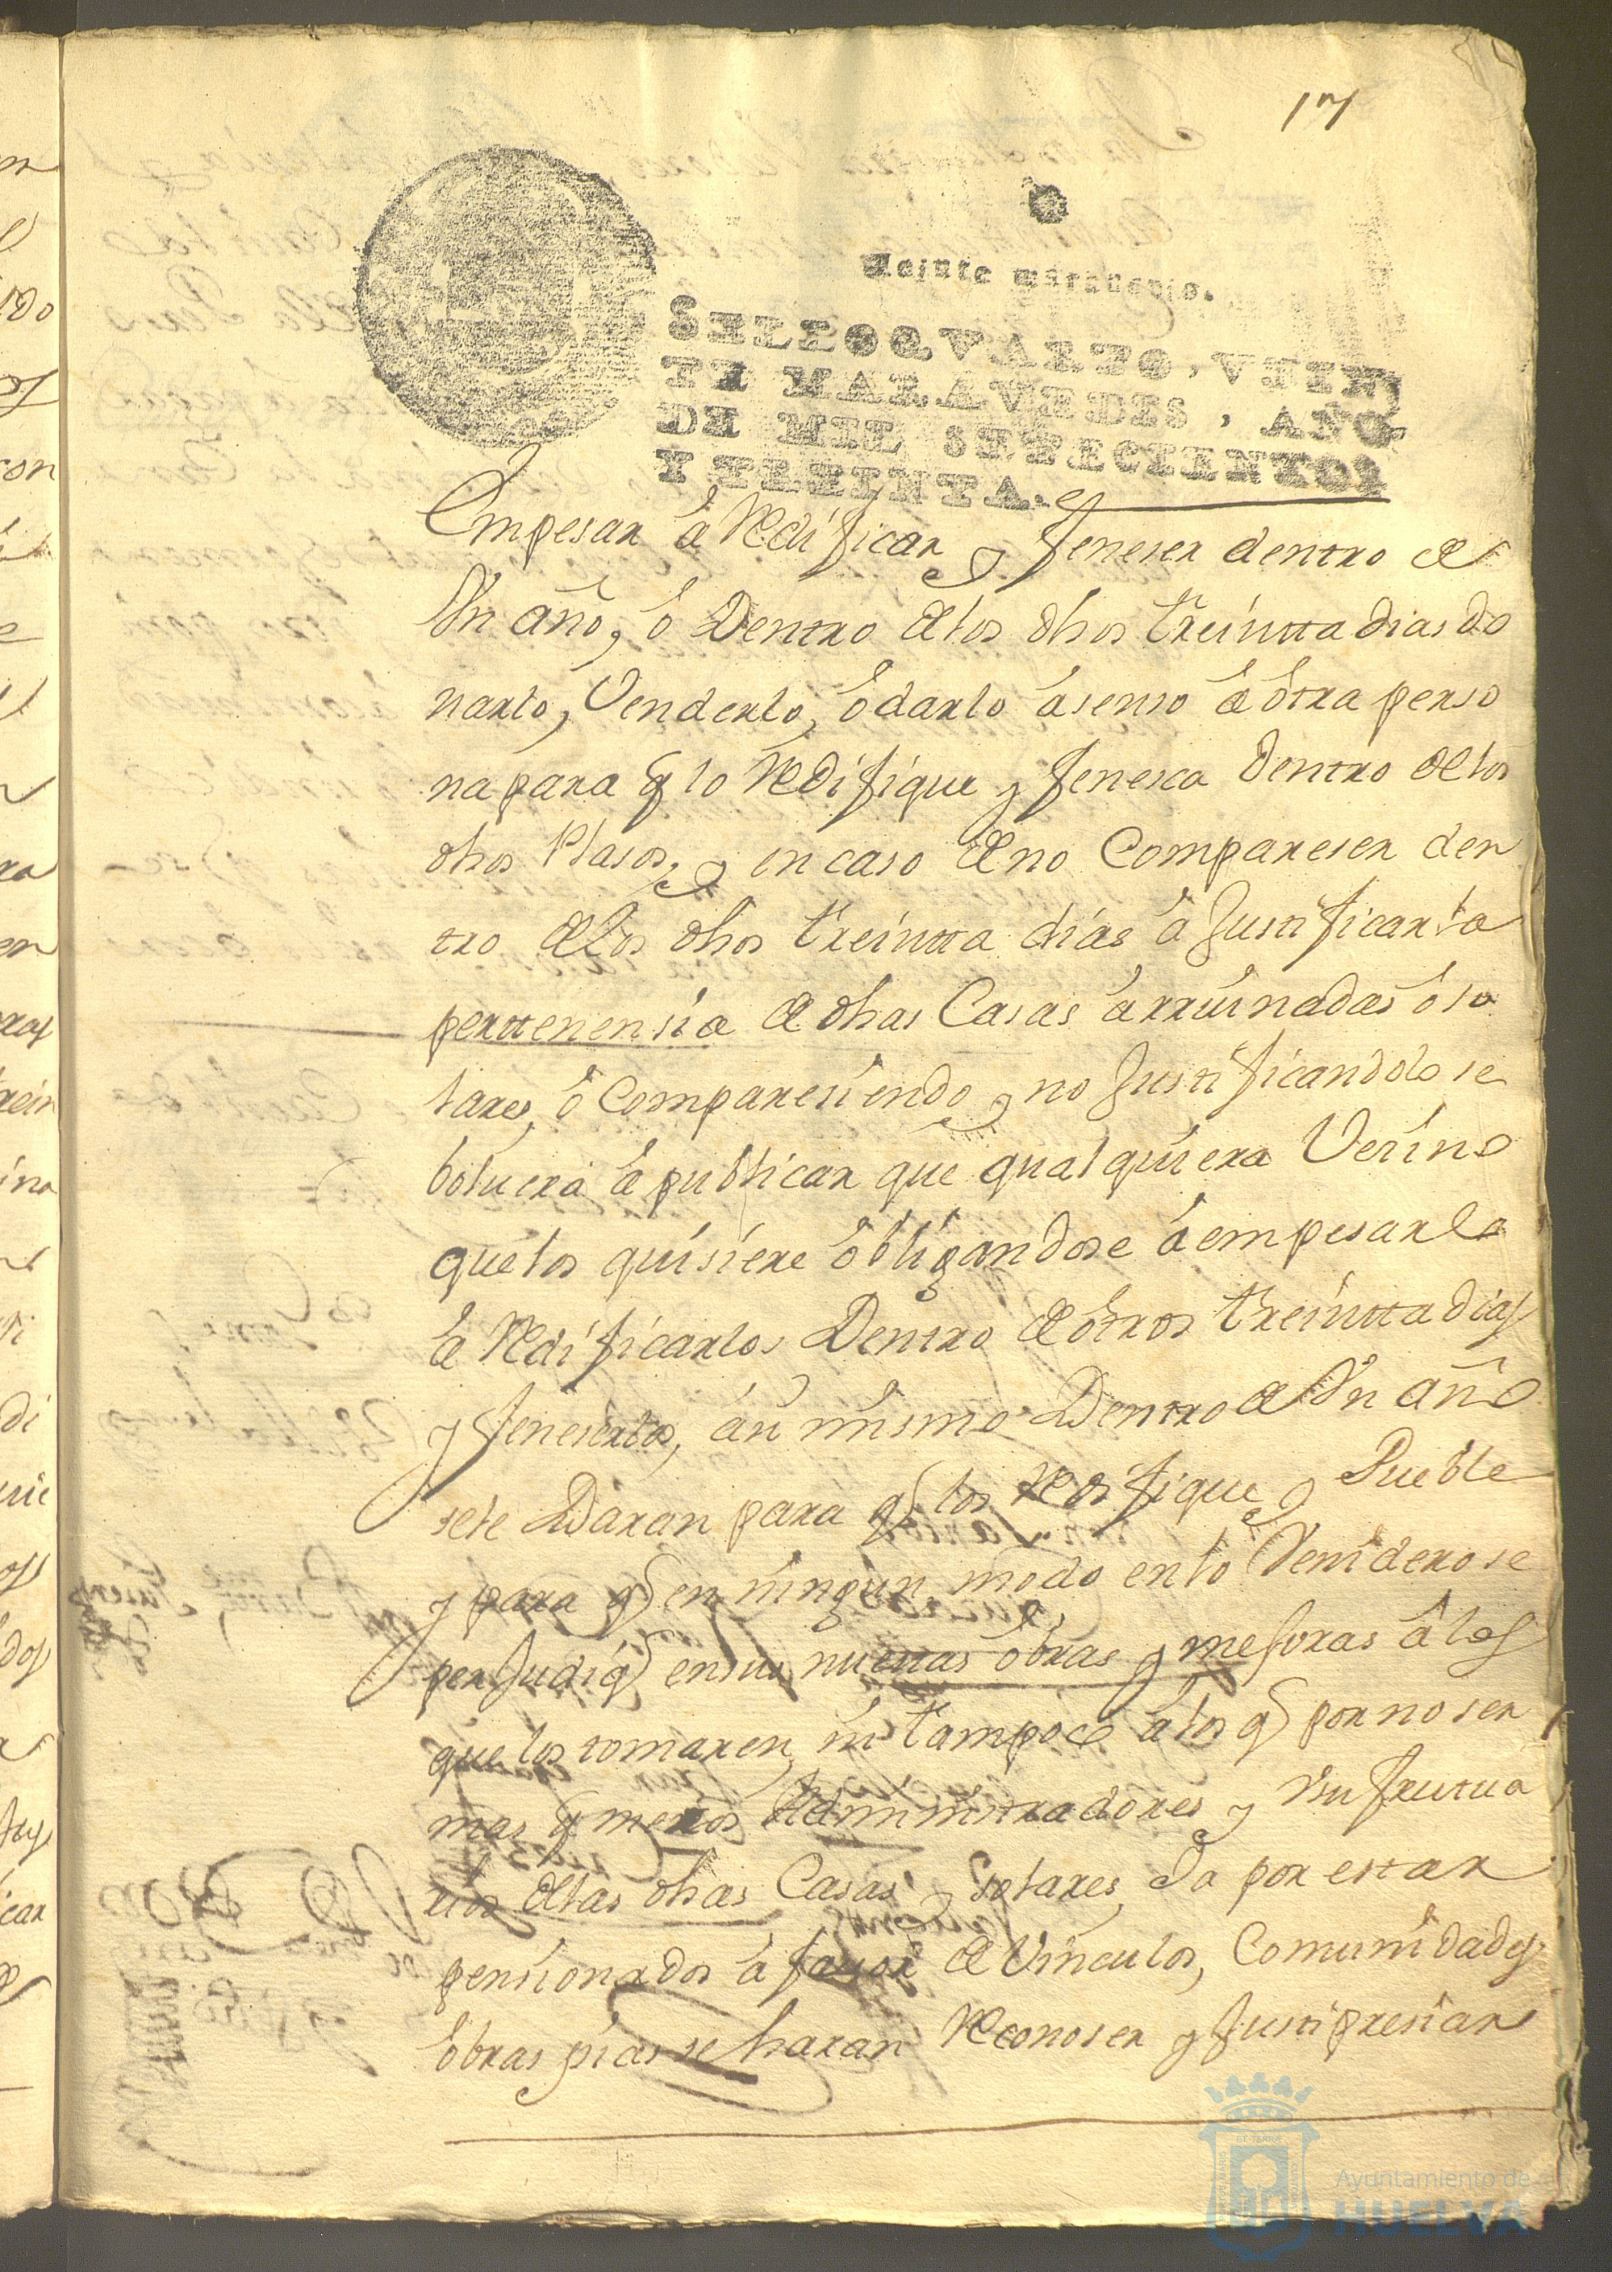 17
Veinte maravedis.
SELLO QVARTO, VEIN
TE MARAVEDIS, AÑO
DE MIL SETECIENTOS
Y TREINTA.
Empesar â Redificar y feneser dentro de
Vn año, ô Dentro de los dhos treintta dias do
narlo, Venderlo, ô darlo âsenso â ôtra perso
na para q lo Redifique y fenesca Dentro de los
dhos Plasos, y en caso de no Compareser den
tro de los dhos treintta dias â Justificar la
perttenensia de dhas Casas ârruinadas ô so
lares, ô Comparesiendo y no Justificandolo se
boluera â publicar que qualquiera Vesino
que los quisiere ôbligandose â empesar
â Redificarlos Dentro de ôtros treintta dias
y feneserlos, âsi mismo Dentro de Vn año
sele Daran para q los Redifique y Pueble
y para q en ningun modo en lo Venidero se
perJudiq en sus nueuas ôbras y mejoras â los
que los tomaren, ni tampoco â los q por no ser
mas q meros Administradores y Vsufrutua
rios de las dhas Casas y solares, Ia por estar
pensionados â fauor de Vinculos, Comunidades
ôbras pias se haran Reconoser y Justipresiar
Ayuntamiento de
HUELVA